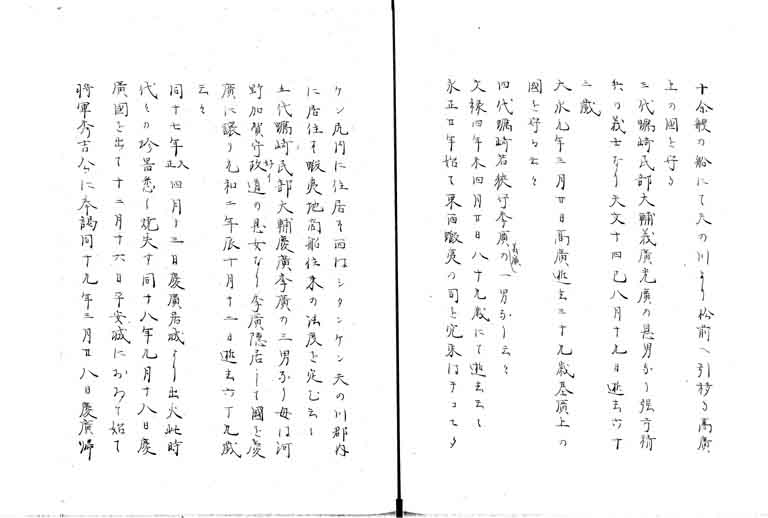 十余艘の船にて天の川より松前へ引移る高廣
上の國を守る
三代蠣崎民部大輔義廣光廣の息男なり強弓精
兵の義士なり天文十四巳八月十九日逝去六十
三歳
大永元年三月廿日高廣逝去三十九歳基廣上の
國を守る云々
四代蠣崎若狭守季廣義廣の一男なり云々
文禄四年未四月廿日八十九歳にて逝去云々
永正廿年始て東西蝦夷の司を定東はチコモタ
ケン尻内に住居す西はシタンケン天の川郡内
に居住す蝦夷地商船往来の法度を定む云々
五代蠣崎民部大輔慶廣季廣の三男なり母は河
野加賀守政道の息女なり季廣隠居して國を慶
廣に譲り元和二年辰十月十二日逝去六十九歳
云々
同十七年天正四月十三日慶廣居城より出火此時
代々の珍器悉く焼失す同十八年九月十八日慶
廣國を出て十二月十六日平安城におゐて始て
将軍秀吉公に奉謁同十九年三月廿八日慶廣歸